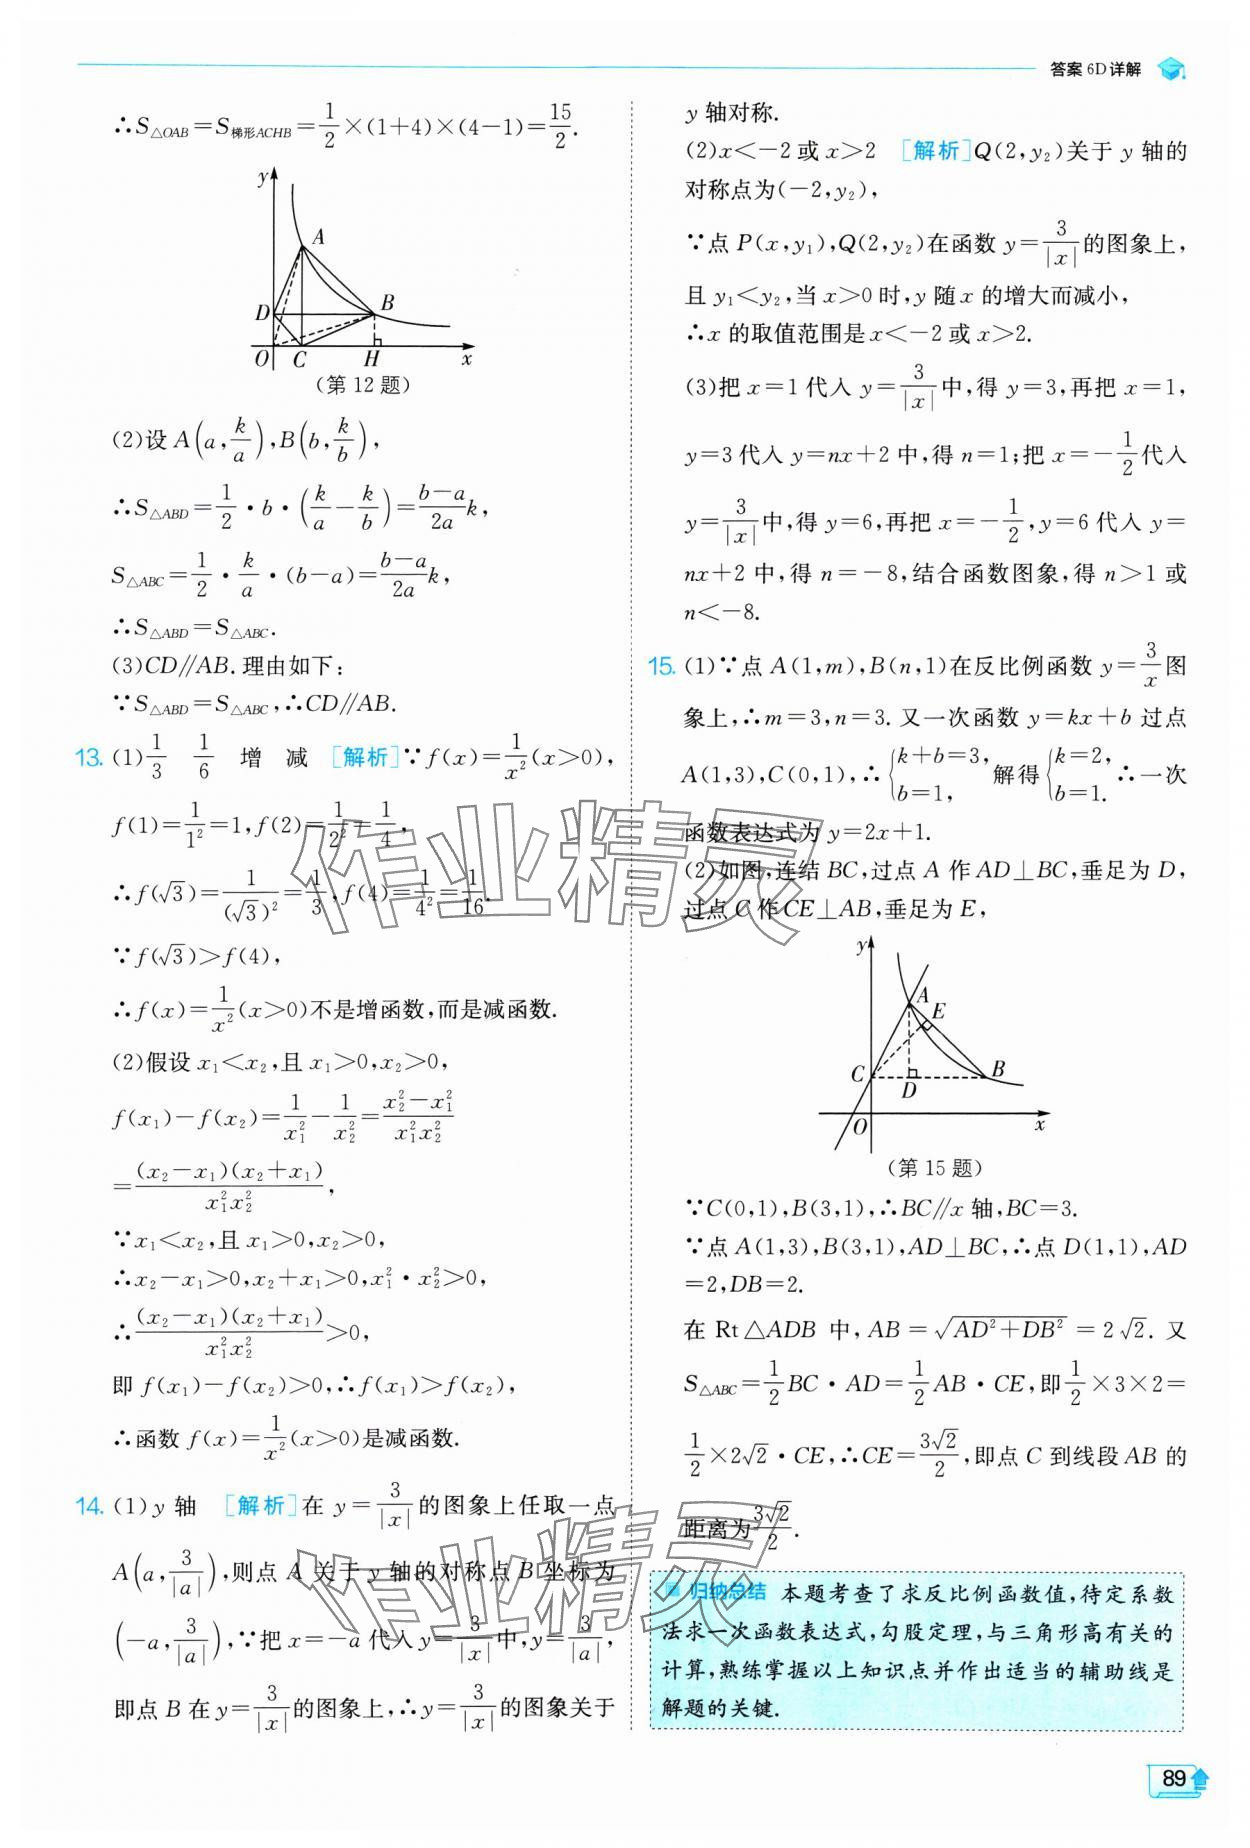 答案 6D 详解
∴S△OAB=S梯形ACHB=1/2×(1+4)×(4-1)=15/2.
y
A
D
B
O
C
H
x
(第 12 题)
(2)设 A(a,k/a),B(b,k/b),
∴S△ABD=1/2·b·(k/a-k/b)=(b-a)/2a k,
S△ABC=1/2·k/a·(b-a)=(b-a)/2a k,
∴S△ABD=S△ABC.
(3)CD∥AB.理由如下:
∵S△ABD=S△ABC,∴CD∥AB.
13. (1)1/3 1/6 增 减 [解析]∵f(x)=1/x²(x>0),
f(1)=1/1²=1,f(2)=1/2²=1/4,
∴f(√3)=1/(√3)²=1/3,f(4)=1/4²=1/16.
∵f(√3)>f(4),
∴f(x)=1/x²(x>0)不是增函数,而是减函数.
(2)假设 x₁<x₂,且 x₁>0,x₂>0,
f(x₁)-f(x₂)=1/x₁²-1/x₂²=(x₂²-x₁²)/x₁²x₂²
=(x₂-x₁)(x₂+x₁)/x₁²x₂²,
∵x₁<x₂,且 x₁>0,x₂>0,
∴x₂-x₁>0,x₂+x₁>0,x₁²·x₂²>0,
∴(x₂-x₁)(x₂+x₁)/x₁²x₂²>0,
即 f(x₁)-f(x₂)>0,∴f(x₁)>f(x₂),
∴函数 f(x)=1/x²(x>0)是减函数.
14. (1)y 轴 [解析]在 y=3/|x|的图象上任取一点
A(a,3/|a|),则点 A 关于 y 轴的对称点 B 坐标为
(-a,3/|a|),∵把 x=-a 代入 y=3/|x|中,y=3/|a|,
即点 B 在 y=3/|x|的图象上,∴y=3/|x|的图象关于
y 轴对称.
(2)x<-2 或 x>2 [解析]Q(2,y₂)关于 y 轴的
对称点为(-2,y₂),
∵点 P(x,y₁),Q(2,y₂)在函数 y=3/|x|的图象上,
且 y₁<y₂,当 x>0 时,y 随 x 的增大而减小,
∴x 的取值范围是 x<-2 或 x>2.
(3)把 x=1 代入 y=3/|x|中,得 y=3,再把 x=1,
y=3 代入 y=nx+2 中,得 n=1;把 x=-1/2代入
y=3/|x|中,得 y=6,再把 x=-1/2,y=6 代入 y=
nx+2 中,得 n=-8,结合函数图象,得 n>1 或
n<-8.
15. (1)∵点 A(1,m),B(n,1)在反比例函数 y=3/x图
象上,∴m=3,n=3. 又一次函数 y=kx+b 过点
A(1,3),C(0,1),∴{k+b=3, b=1, 解得{k=2, b=1. ∴一次
函数表达式为 y=2x+1.
(2)如图,连结 BC,过点 A 作 AD⊥BC,垂足为 D,
过点 C 作 CE⊥AB,垂足为 E,
y
A
E
C
D
B
O
x
(第 15 题)
∵C(0,1),B(3,1),∴BC∥x 轴,BC=3.
∵点 A(1,3),B(3,1),AD⊥BC,∴点 D(1,1),AD
=2,DB=2.
在 Rt△ADB 中,AB=√(AD²+DB²)=2√2. 又
S△ABC=1/2 BC·AD=1/2 AB·CE,即1/2×3×2=
1/2×2√2·CE,∴CE=3√2/2,即点 C 到线段 AB 的
距离为3√2/2.
归纳总结 本题考查了求反比例函数值,待定系数
法求一次函数表达式,勾股定理,与三角形高有关的
计算,熟练掌握以上知识点并作出适当的辅助线是
解题的关键.
89
作业精灵
作业精灵